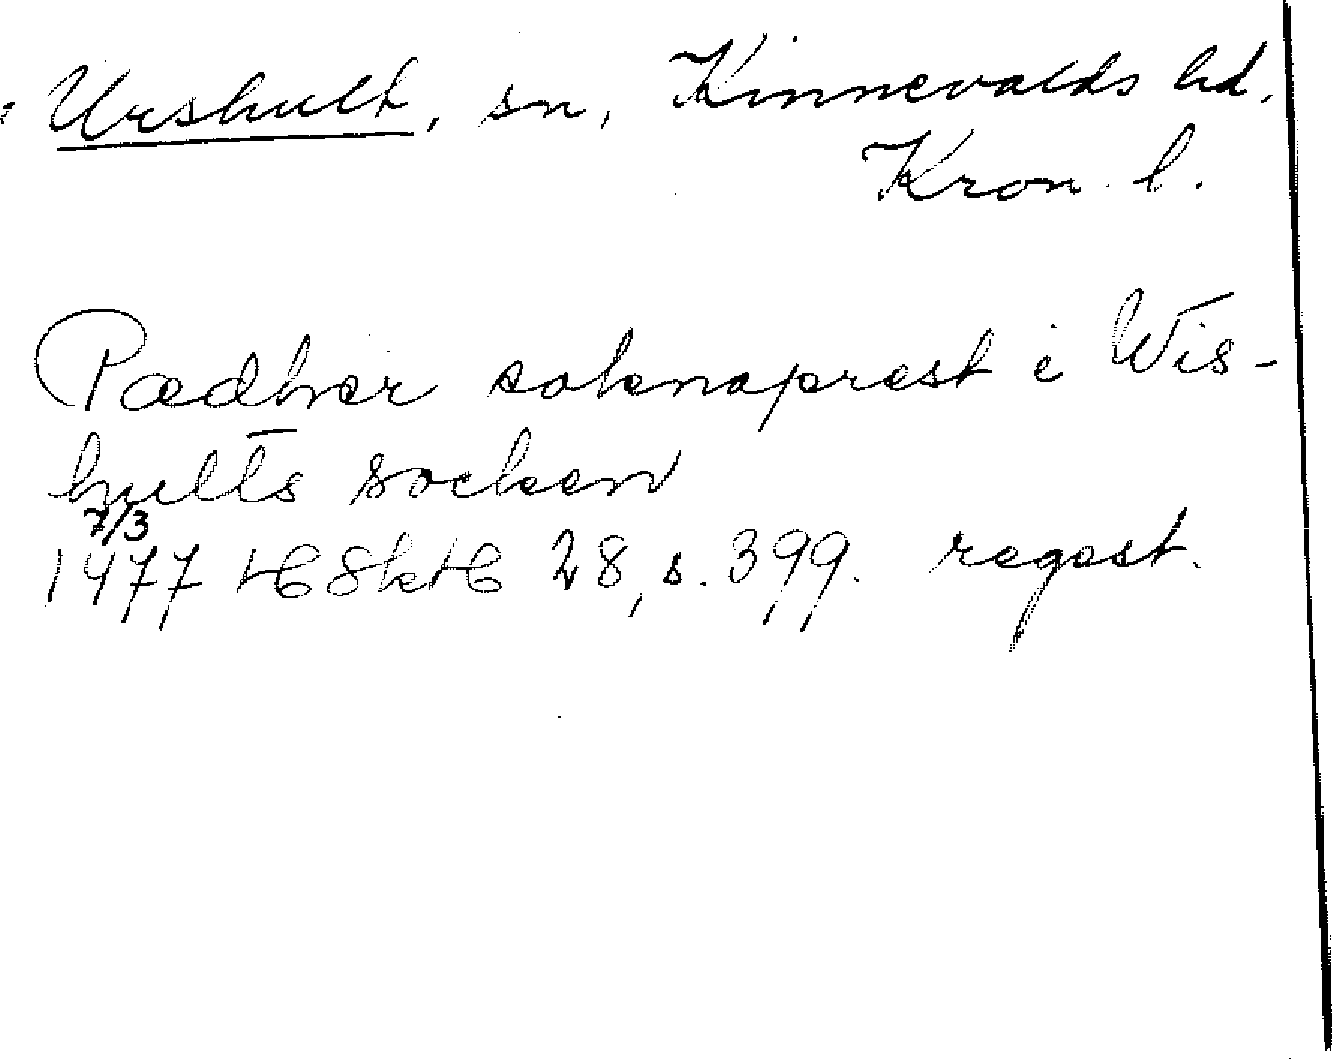 Urshult, sn, Kinnevalds hd.
Kron. l.
Pædher soknaprest i Wis-
hults socken
7/3
1477 HC Sk HC 28, s. 399. regest.